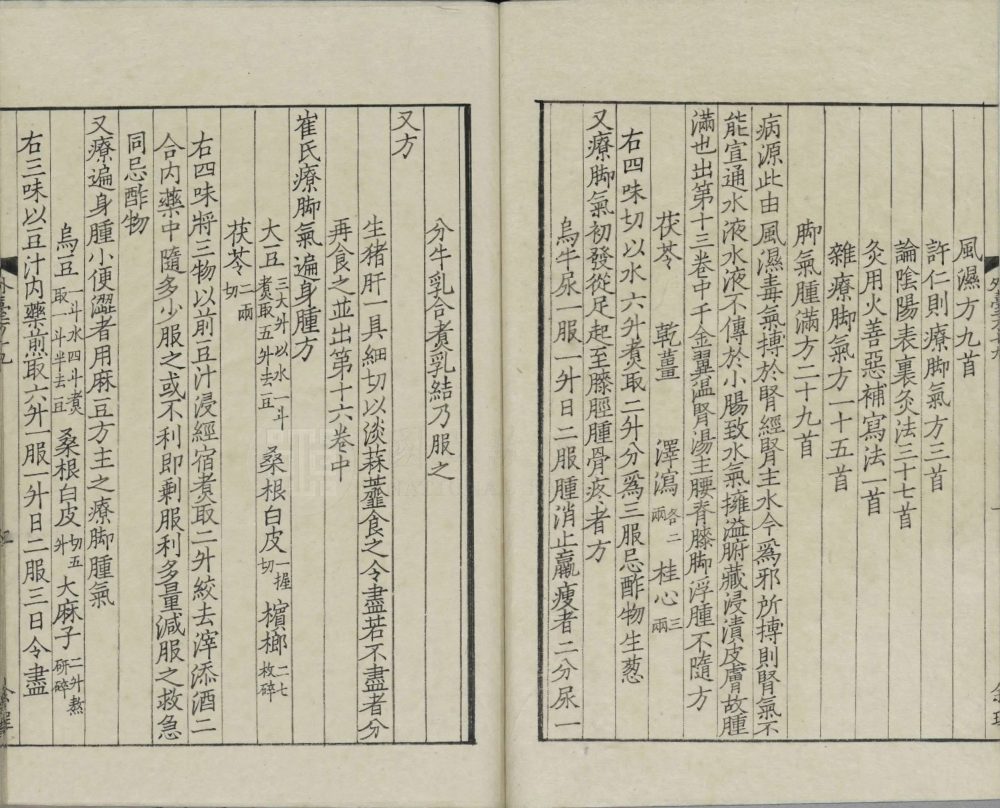 風濕方九首
許仁則療脚氣方三首
論陰陽表裏灸法三十七首
灸用火善惡補寫法一首
雜療脚氣方一十五首
脚氣腫滿方二十九首
病源此由風濕毒氣搏於腎經腎主水今爲邪所搏則腎氣不
能宣通水液水液不傳於小腸致水氣擁溢腑藏浸漬皮膚故腫
滿也出第十三卷中千金翼溫腎湯主腰脊膝脚浮腫不隨方
茯苓 乾薑 澤瀉各二兩 桂心三兩
右四味切以水六升煮取二升分爲三服忌酢物生葱
又療脚氣初發從足起至膝脛腫骨疼者方
烏牛尿一服一升日二服腫消止羸瘦者二分尿一
分牛乳合煮乳結乃服之
又方
生猪肝一具細切以淡蒜虀食之令盡若不盡者分
再食之並出第十六卷中
崔氏療脚氣遍身腫方
大豆三大升以水一斗煮取五升去豆 桑根白皮一握切 檳榔二七枚碎
茯苓二兩切
右四味將三物以前豆汁浸經宿煮取二升絞去滓添酒二
合内藥中隨多少服之或不利即剩服利多量減服之救急
同忌酢物
又療遍身腫小便澀者用麻豆方主之療脚腫氣
烏豆一斗水四斗煮取一斗半去豆 桑根白皮切五升 大麻子二升熬研碎
右三味以豆汁内藥煎取六升一服一升日二服三日令盡